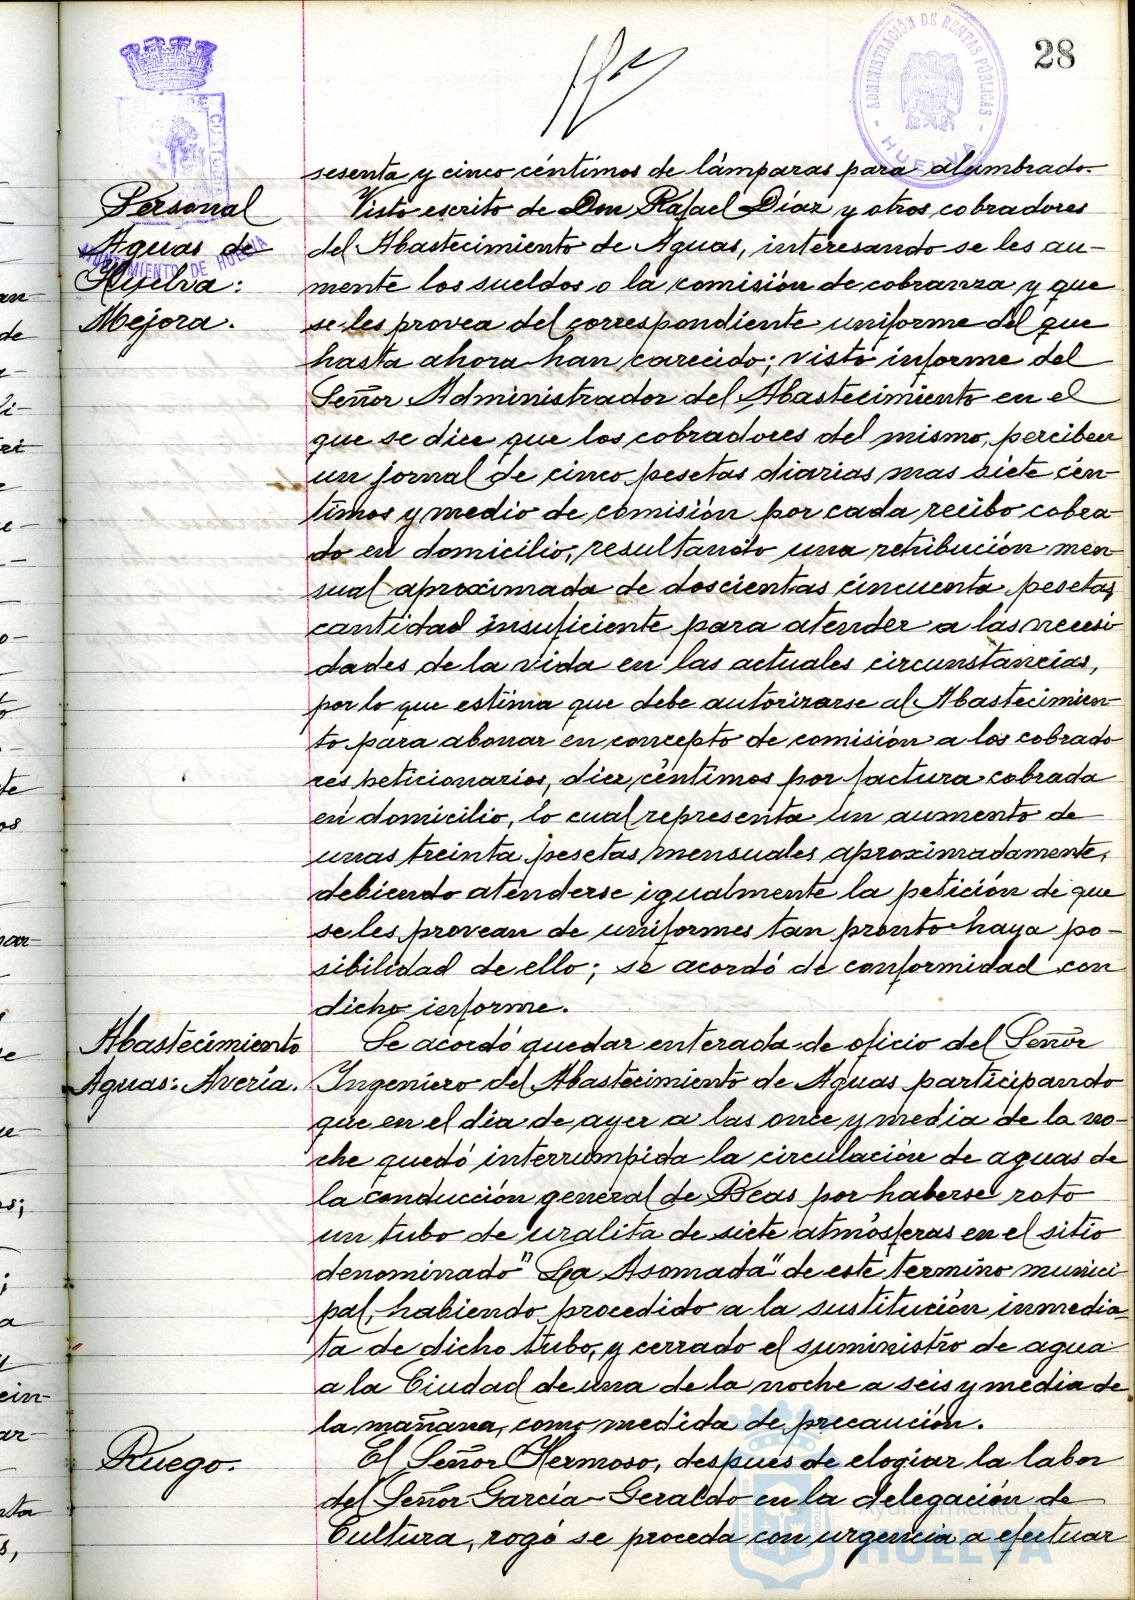 28
ADMINISTRACIÓN DE RENTAS PÚBLICAS
HUELVA
AYUNTAMIENTO DE HUELVA
sesenta y cinco céntimos de lámparas para alumbrado.
Personal
Aguas de
Huelva:
Mejora.
Visto escrito de Don Rafael Díaz y otros cobradores
del Abastecimiento de Aguas, interesando se les au-
mente los sueldos o la comisión de cobranza y que
se les provea del correspondiente uniforme del que
hasta ahora han carecido; visto informe del
Señor Administrador del Abastecimiento en el
que se dice que los cobradores del mismo, perciben
un jornal de cinco pesetas diarias mas siete cén-
timos y medio de comisión por cada recibo cobra-
do en domicilio, resultando una retribución men-
sual aproximada de doscientas cincuenta pesetas,
cantidad insuficiente para atender a las necesi
dades de la vida en las actuales circunstancias,
por lo que estima que debe autorizarse al Abastecimien-
to para abonar en concepto de comisión a los cobrado
res peticionarios, diez céntimos por factura cobrada
en domicilio, lo cual representa un aumento de
unas treinta pesetas mensuales aproximadamente,
debiendo atenderse igualmente la petición de que
se les provean de uniformes tan pronto haya po-
sibilidad de ello; se acordó de conformidad con
dicho informe.
Abastecimiento
Aguas: Avería.
Se acordó quedar enterada de oficio del Señor
Ingeniero del Abastecimiento de Aguas participando
que en el día de ayer a las once y media de la no-
che quedó interrumpida la circulación de aguas de
la conducción general de Beas por haberse roto
un tubo de uralita de siete atmósferas en el sitio
denominado "La Asomada" de este término munici
pal, habiendo procedido a la sustitución inmedia-
ta de dicho tubo, y cerrado el suministro de agua
a la Ciudad de una de la noche a seis y media de
la mañana, como medida de precaución.
Ruego.
El Señor Hermoso, después de elogiar la labor
del Señor García-Geraldo en la delegación de
Cultura, rogó se proceda con urgencia a efectuar
Ayuntamiento de
HUELVA